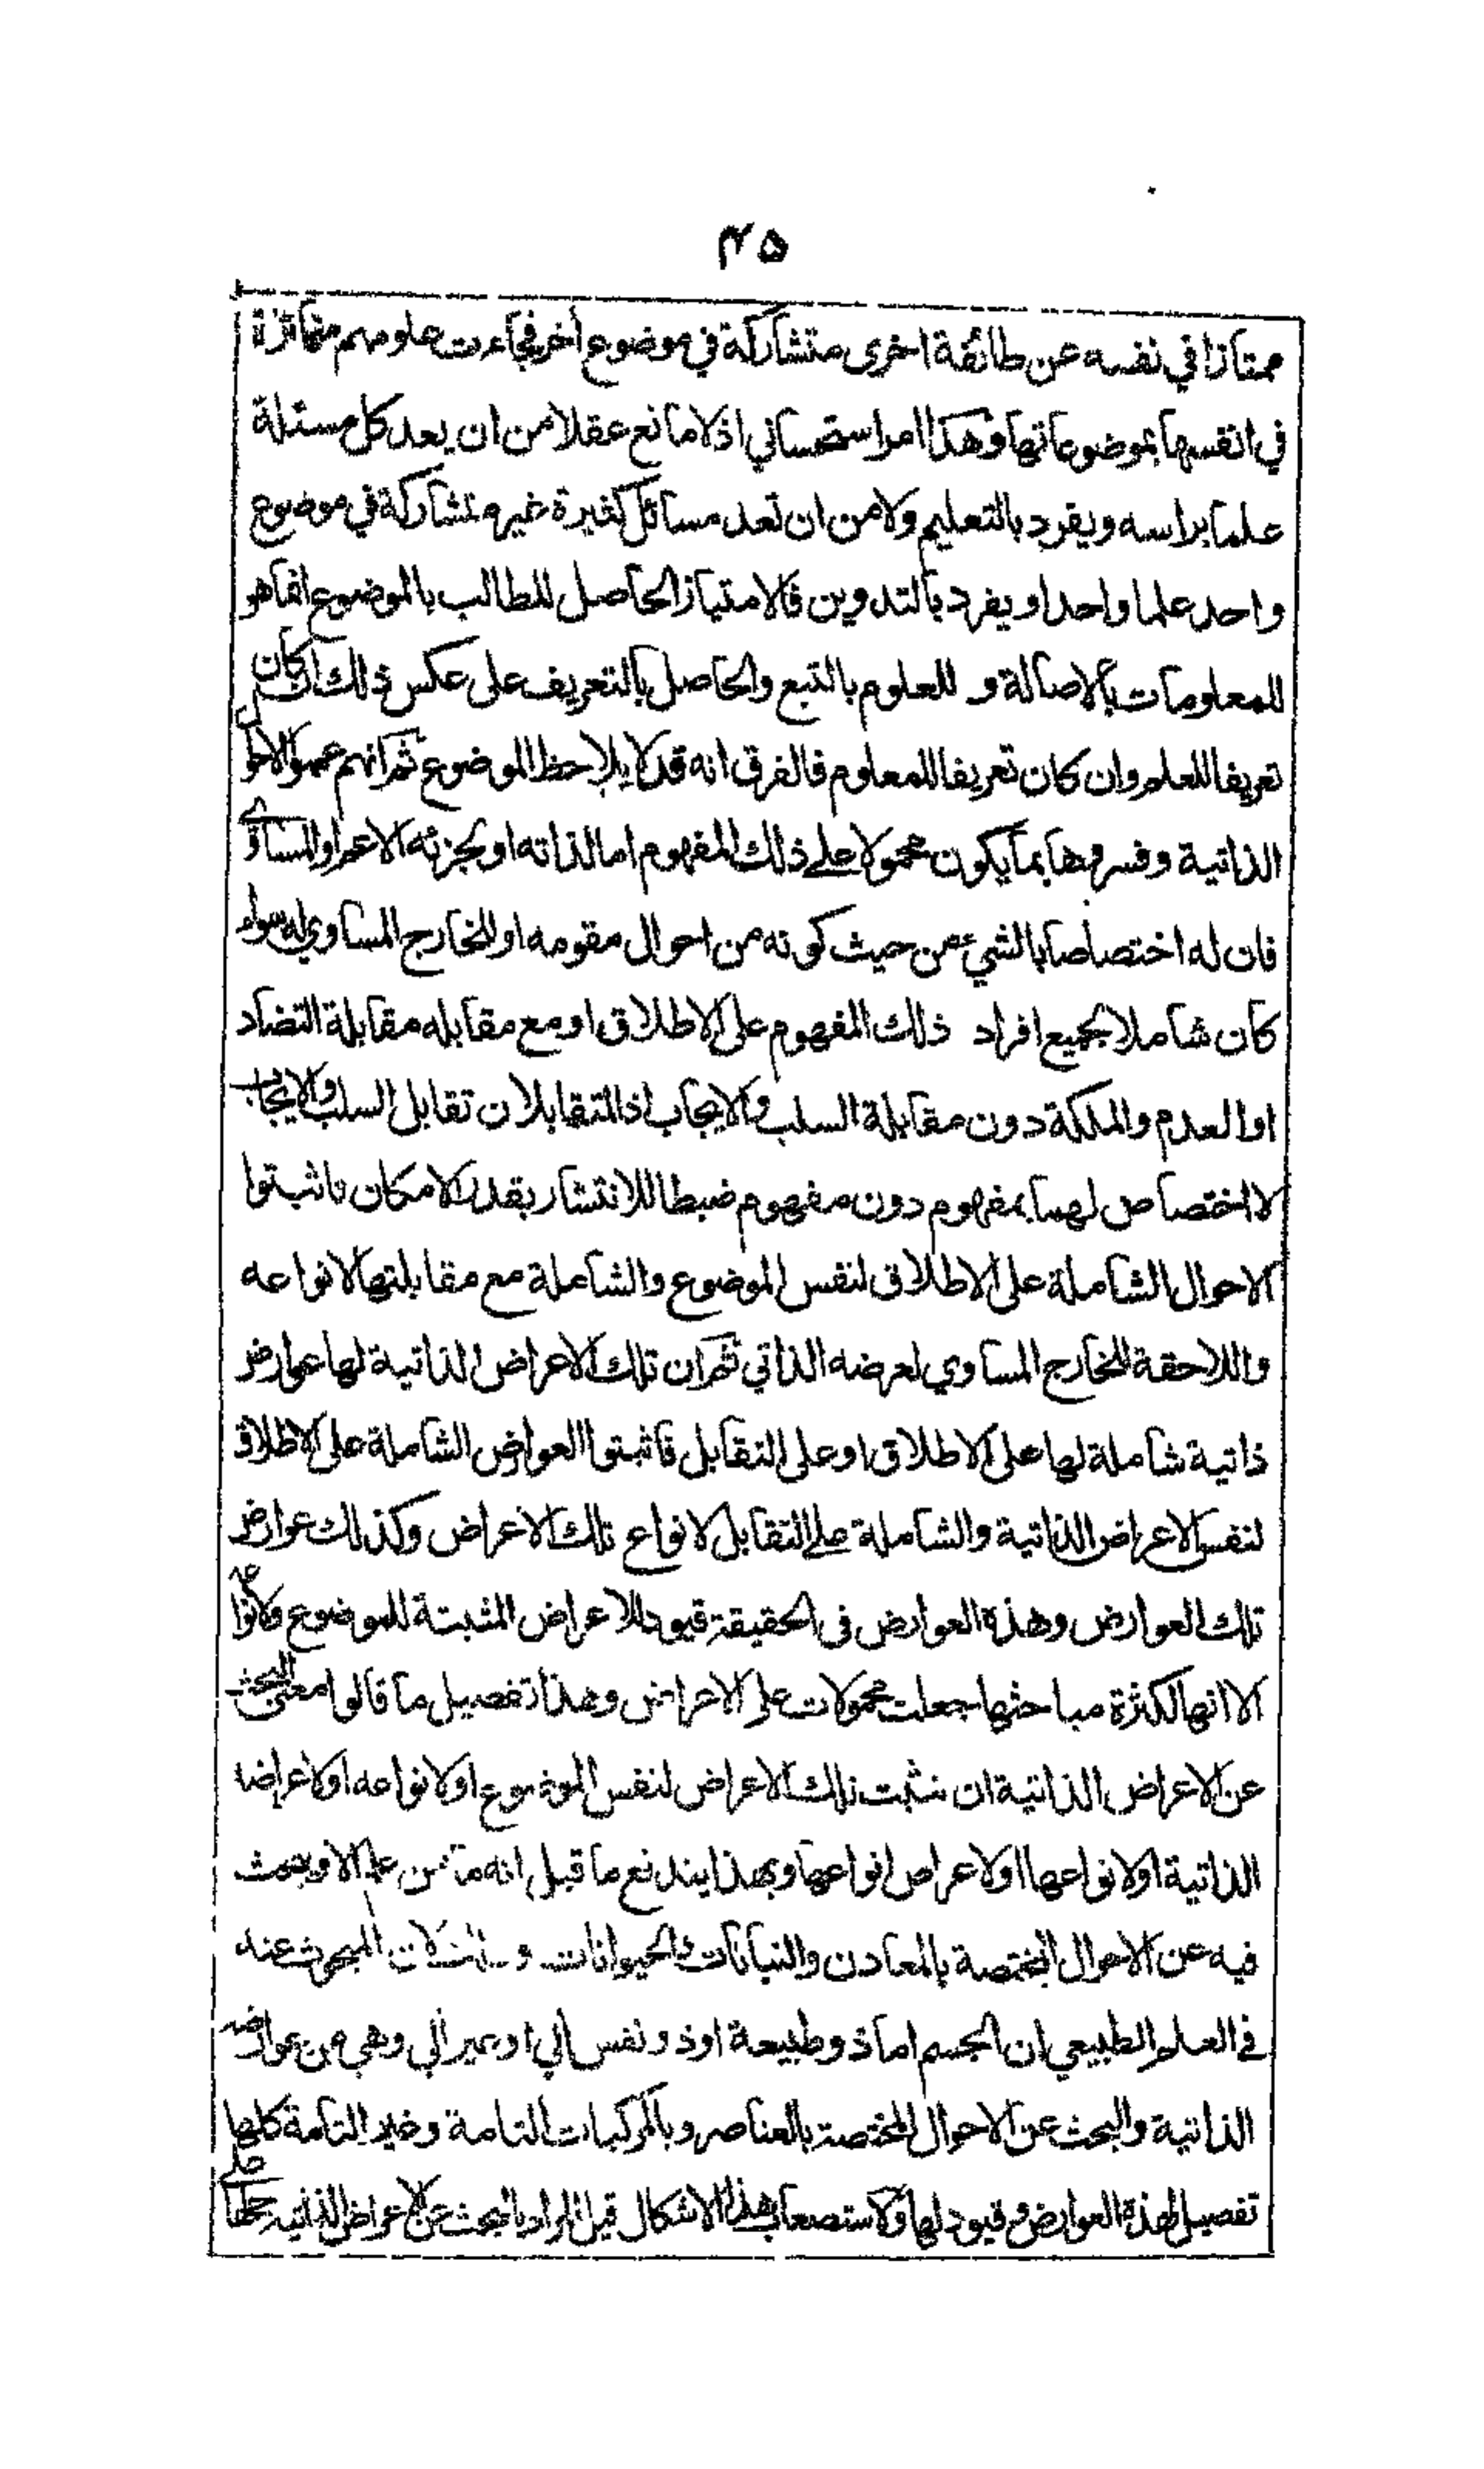 ٣٥
ممتازا في نفسه عن طائفة اخرى متشاركة في موضوع أخر فجاءت علومهم متمائزة
في انفسها بموضوعاتها وهذا امر استحساني اذ لا مانع عقلا من ان يعد كل مسئلة
علما براسه ويفرد بالتعليم ولا من ان تعد مسائل كثيرة غير متشاركة في موضوع
واحد علما واحدا ويفرد بالتدوين فالامتياز الحاصل للطالب بالموضوع انما هو
للمعلومات بالاصالة و للعلوم بالتبع والحاصل بالتعريف على عكس ذلك ان كان
تعريفا للعلم وان كان تعريفا للمعلوم فالفرق انه قد لا يلاحظ الموضوع ثم انهم عمموا الاحوال
الذاتية وفسروها بما يكون محمولا على ذلك المفهوم اما لذاته او لجزئه الاعم او المساوي
فان له اختصاصا بالشيء من حيث كونه من احوال مقومه او للخارج المساوي له سواء
كان شاملا لجميع افراد ذلك المفهوم على الاطلاق او مع مقابله مقابلة التضاد
او العدم والملكة دون مقابلة السلب والايجاب اذ المتقابلان تقابل السلب والايجاب
لا اختصاص لهما بمفهوم دون مفهوم ضبطا للانتشار بقدر الامكان فاثبتوا
الاحوال الشاملة على الاطلاق لنفس الموضوع والشاملة مع مقابلتها لانواعه
واللاحقة للخارج المساوي لعرضه الذاتي ثم ان تلك الاعراض الذاتية لها عوارض
ذاتية شاملة لها على الاطلاق او على التقابل فاثبتوا العوارض الشاملة على الاطلاق
لنفس الاعراض الذاتية والشاملة على التقابل لانواع تلك الاعراض وكذلك عوارض
تلك العوارض وهذه العوارض في الحقيقة قيود للاعراض المثبتة للموضوع ولانواعه
الا انها لكثرة مباحثها جعلت محمولات على الاعراض وهذا تفصيل ما قالوا معنى البحث
عن الاعراض الذاتية ان نثبت تلك الاعراض لنفس الموضوع او لانواعه او لاعراضه
الذاتية او لانواعها او لاعراض انواعها وبهذا يندفع ما قيل انه ما من علم الا ويبحث
فيه عن الاحوال المختصة بالمعادن والنباتات والحيوانات و المبحوث عنه
في العلم الطبيعي ان الجسم اما ذو طبيعة او ذو نفس الي او غير الي وهي من عوارضه
الذاتية والبحث عن الاحوال المختصة بالعناصر وبالمركبات التامة وغير التامة كلها
تفصيل لهذه العوارض وقيود لها ولاستصعاب هذا الاشكال قيل المراد بالبحث عن الاعراض الذاتية حملها على